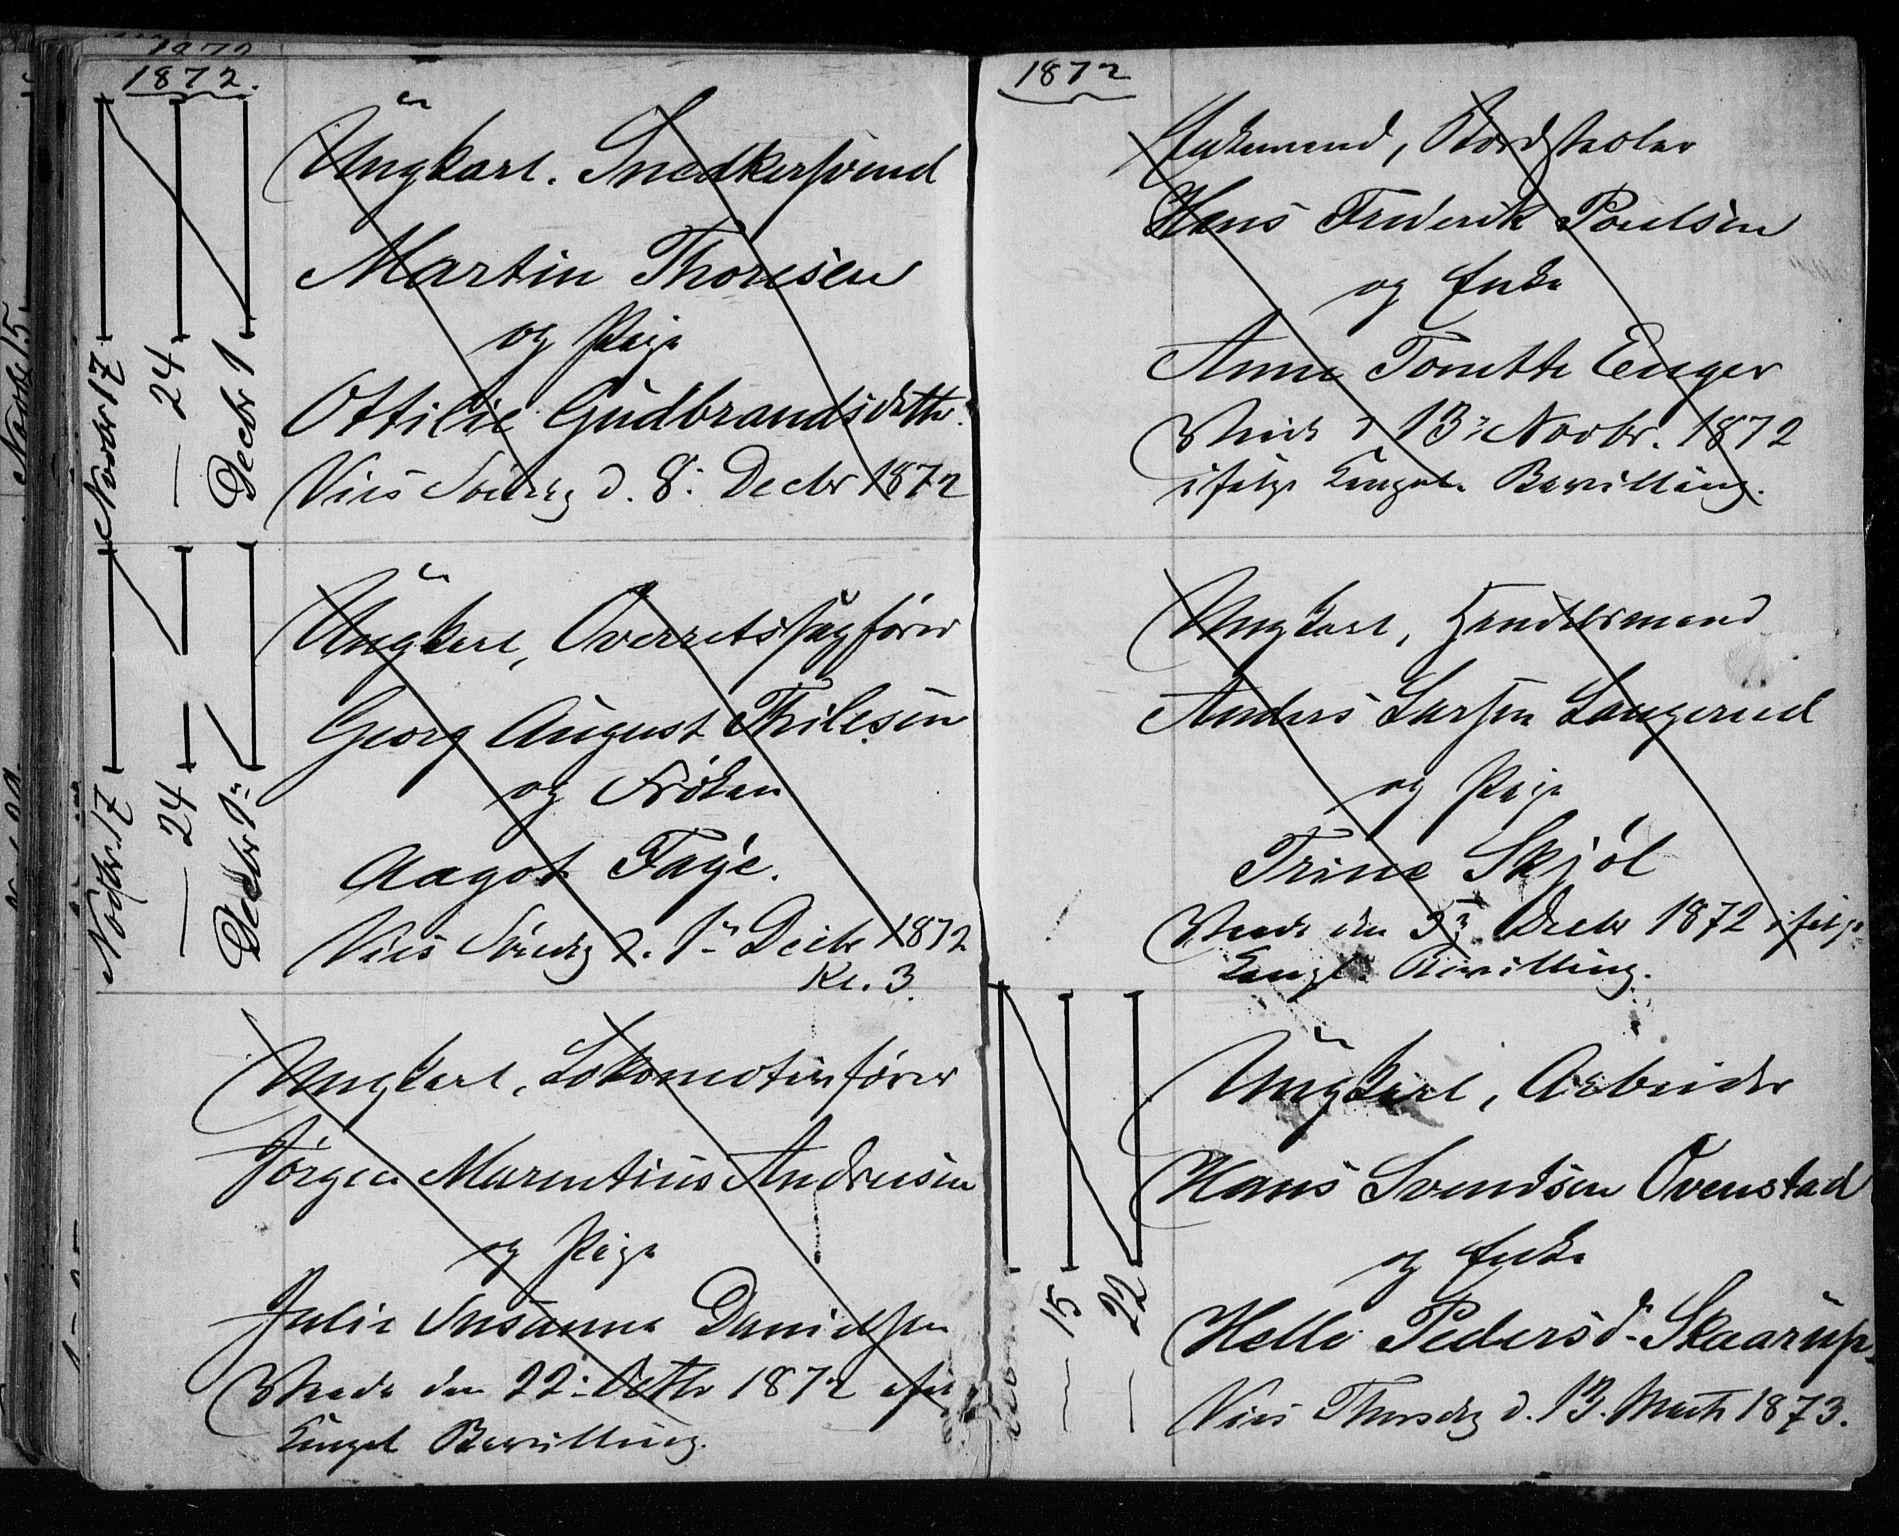 1872.
Novbr 17
— 24
Decbr 1
Ungkarl. Snedkersvend
Martin Thoresen
og Pige
Ottilie Gudbrandsdatter.
Vies Søndag d. 8: Decbr 1872
Novbr. 17
— 24
Decbr 1ⁿ
Ungkarl, Overretssagfører
Georg August Thilesen
og Frøken
Aagot Faye.
Vies Søndag d. 1ⁿ Decbr 1872
Kl. 3.
Ungkarl, Lokomotivfører
Jørgen Marentius Andresen
og Pige
Julie Susanna Danielsen
Viede den 22: Octbr 1872
Kongel Bevilling.
1872
Enkemand,
Hans Frederik Poulsen
og Enke
Anne Tonette Enger
13: Novbr. 1872
ifølge Kongel. Bevilling.
Ungkarl, Handelsmand
Anders Larsen Langerud
og Pige
Trine Skjøl
Viede den 5: Decbr 1872 ifølge
Kongl. Bevilling.
— 15
— 22
Ungkarl, Arbeider
Hans Svendsen Ovenstad
og Enke
Helle Pedersd. Skaarup.
Vies Thorsdag d. 13. Marts 1873.